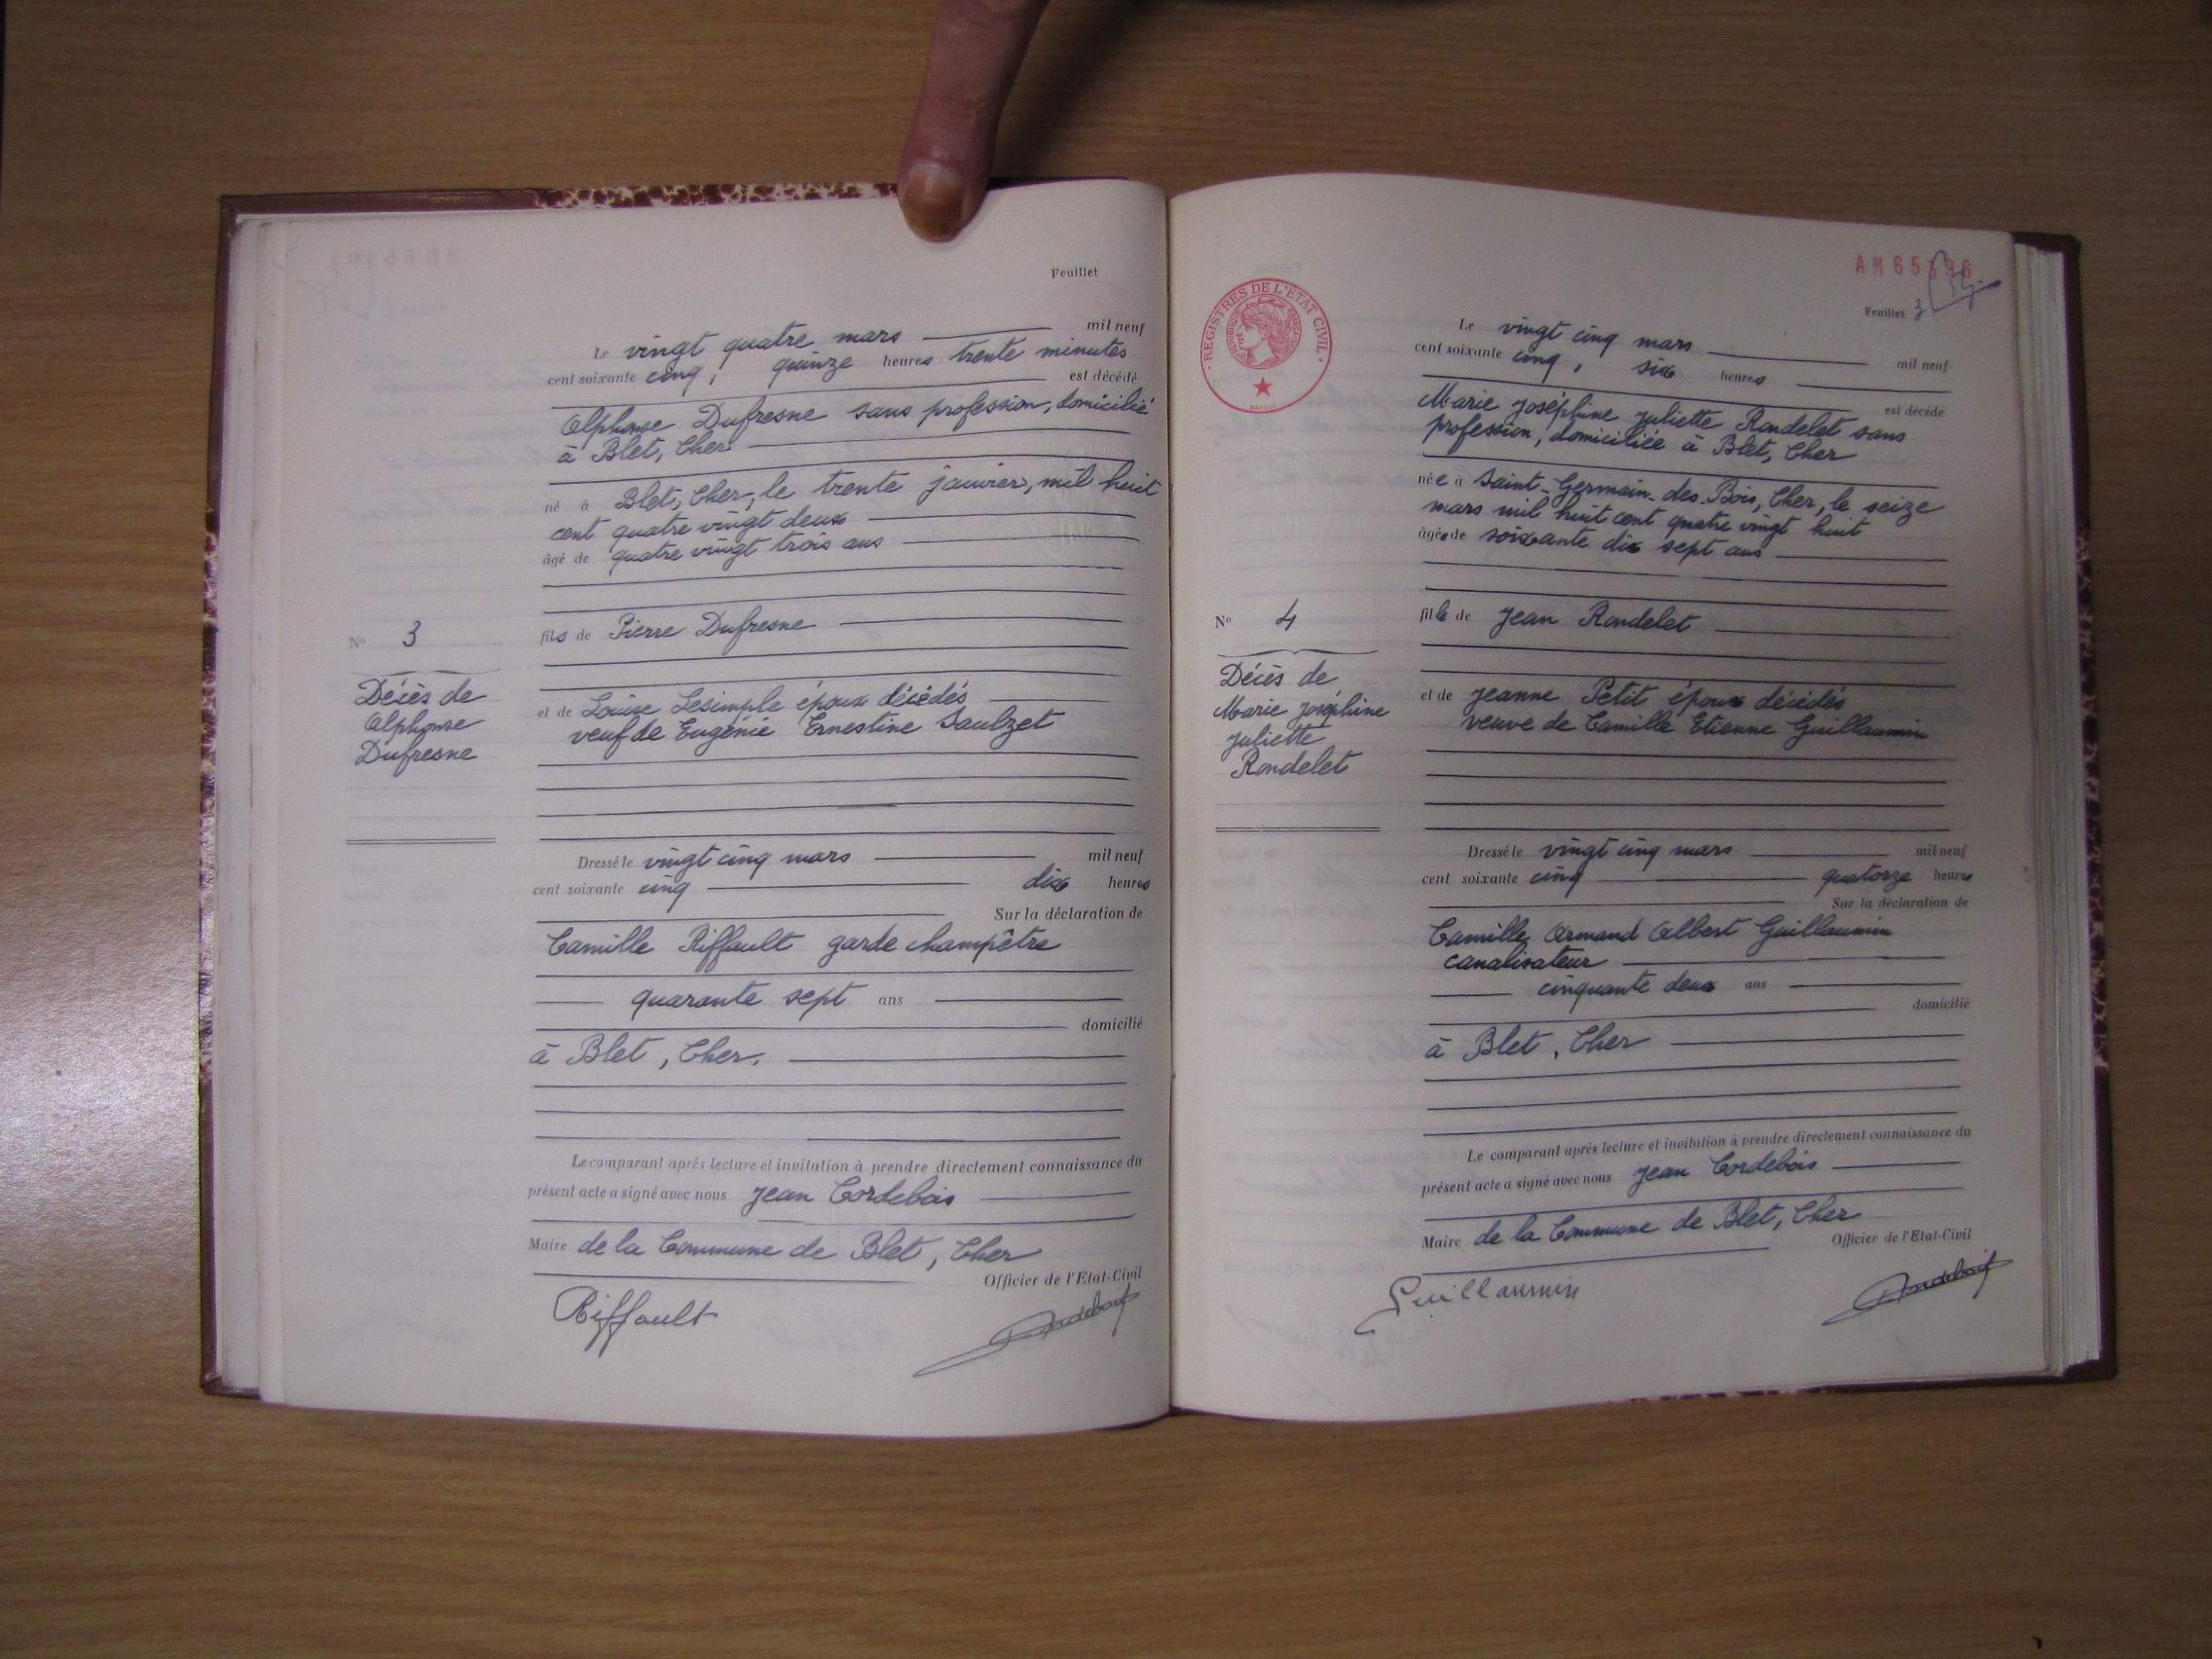 Feuillet
Le vingt quatre mars mil neuf
cent soixante cinq, quinze heures trente minutes
est décédé
Alphonse Dufresne sans profession, domicilié
à Blet, Cher
né à Blet, Cher, le trente janvier, mil huit
cent quatre vingt deux
âgé de quatre vingt trois ans
N° 3
fils de Pierre Dufresne
Décès de
Alphonse
Dufresne
et de Louise Lesimple époux décédés
veuf de Eugénie Ernestine Saulzet
Dressé le vingt cinq mars mil neuf
cent soixante cinq dix heures
Sur la déclaration de
Camille Riffault garde champêtre
quarante sept ans
domicilié
à Blet, Cher.
Le comparant après lecture et invitation à prendre directement connaissance du
présent acte a signé avec nous Jean Cordebois
Maire de la Commune de Blet, Cher
Officier de l'Etat-Civil
Riffault
REGISTRES DE L'ETAT CIVIL
Feuillet 3
Le vingt cinq mars mil neuf
cent soixante cinq, six heures
est décédé
Marie Joséphine Juliette Rondelet sans
profession, domiciliée à Blet, Cher
née à Saint-Germain-des-Bois, Cher, le seize
mars mil huit cent quatre vingt huit
âgée de soixante dix sept ans
N° 4
fille de Jean Rondelet
Décès de
Marie Joséphine
Juliette
Rondelet
et de Jeanne Petit époux décédés
veuve de Camille Etienne Guillaumin
Dressé le vingt cinq mars mil neuf
cent soixante cinq quatorze heures
Sur la déclaration de
Camille Armand Albert Guillaumin
canalisateur
cinquante deux ans
domicilié
à Blet, Cher
Le comparant après lecture et invitation à prendre directement connaissance du
présent acte a signé avec nous Jean Cordebois
Maire de la Commune de Blet, Cher
Officier de l'Etat-Civil
Guillaumin